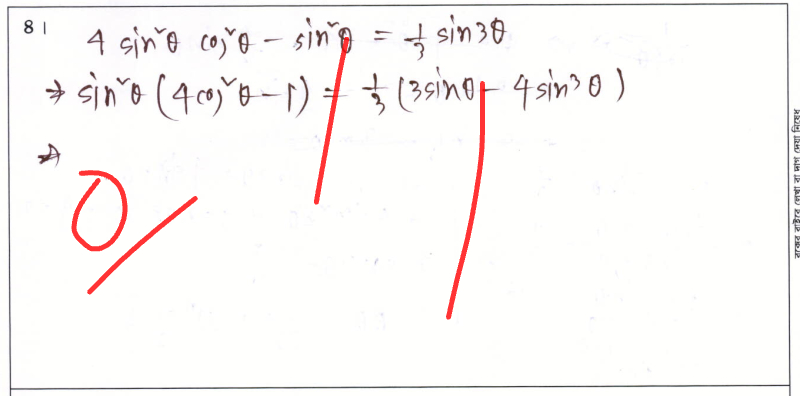 8। 4 sin²θ cos²θ - sin²θ = 1/3 sin3θ
⇒ sin²θ (4cos²θ-1) = 1/3 (3sinθ - 4sin³θ)
⇒
0
বক্সের বাইরে লেখা বা দাগ দেয়া নিষেধ